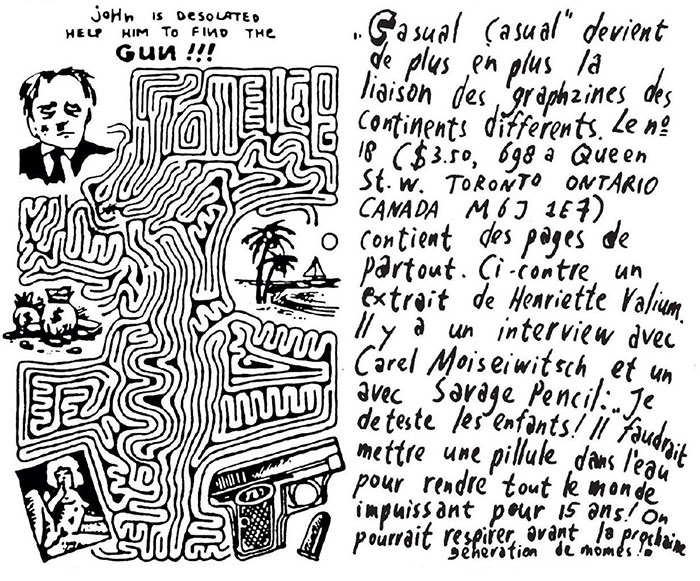 JOHN IS DESOLATED
HELP HIM TO FIND THE
GUN !!!
„Casual Casual" devient
de plus en plus la
liaison des graphzines des
continents differents. Le nº
18 ($3.50, 698 a Queen
St. W. TORONTO ONTARIO
CANADA M6J 1E7)
contient des pages de
partout. Ci-contre un
extrait de Henriette Valium.
Il y a un interview avec
Carel Moiseiwitsch et un
avec Savage Pencil: „Je
deteste les enfants! Il faudrait
mettre une pillule dans l'eau
pour rendre tout le monde
impuissant pour 15 ans! On
pourrait respirer avant la prochaine
generation de momes!"